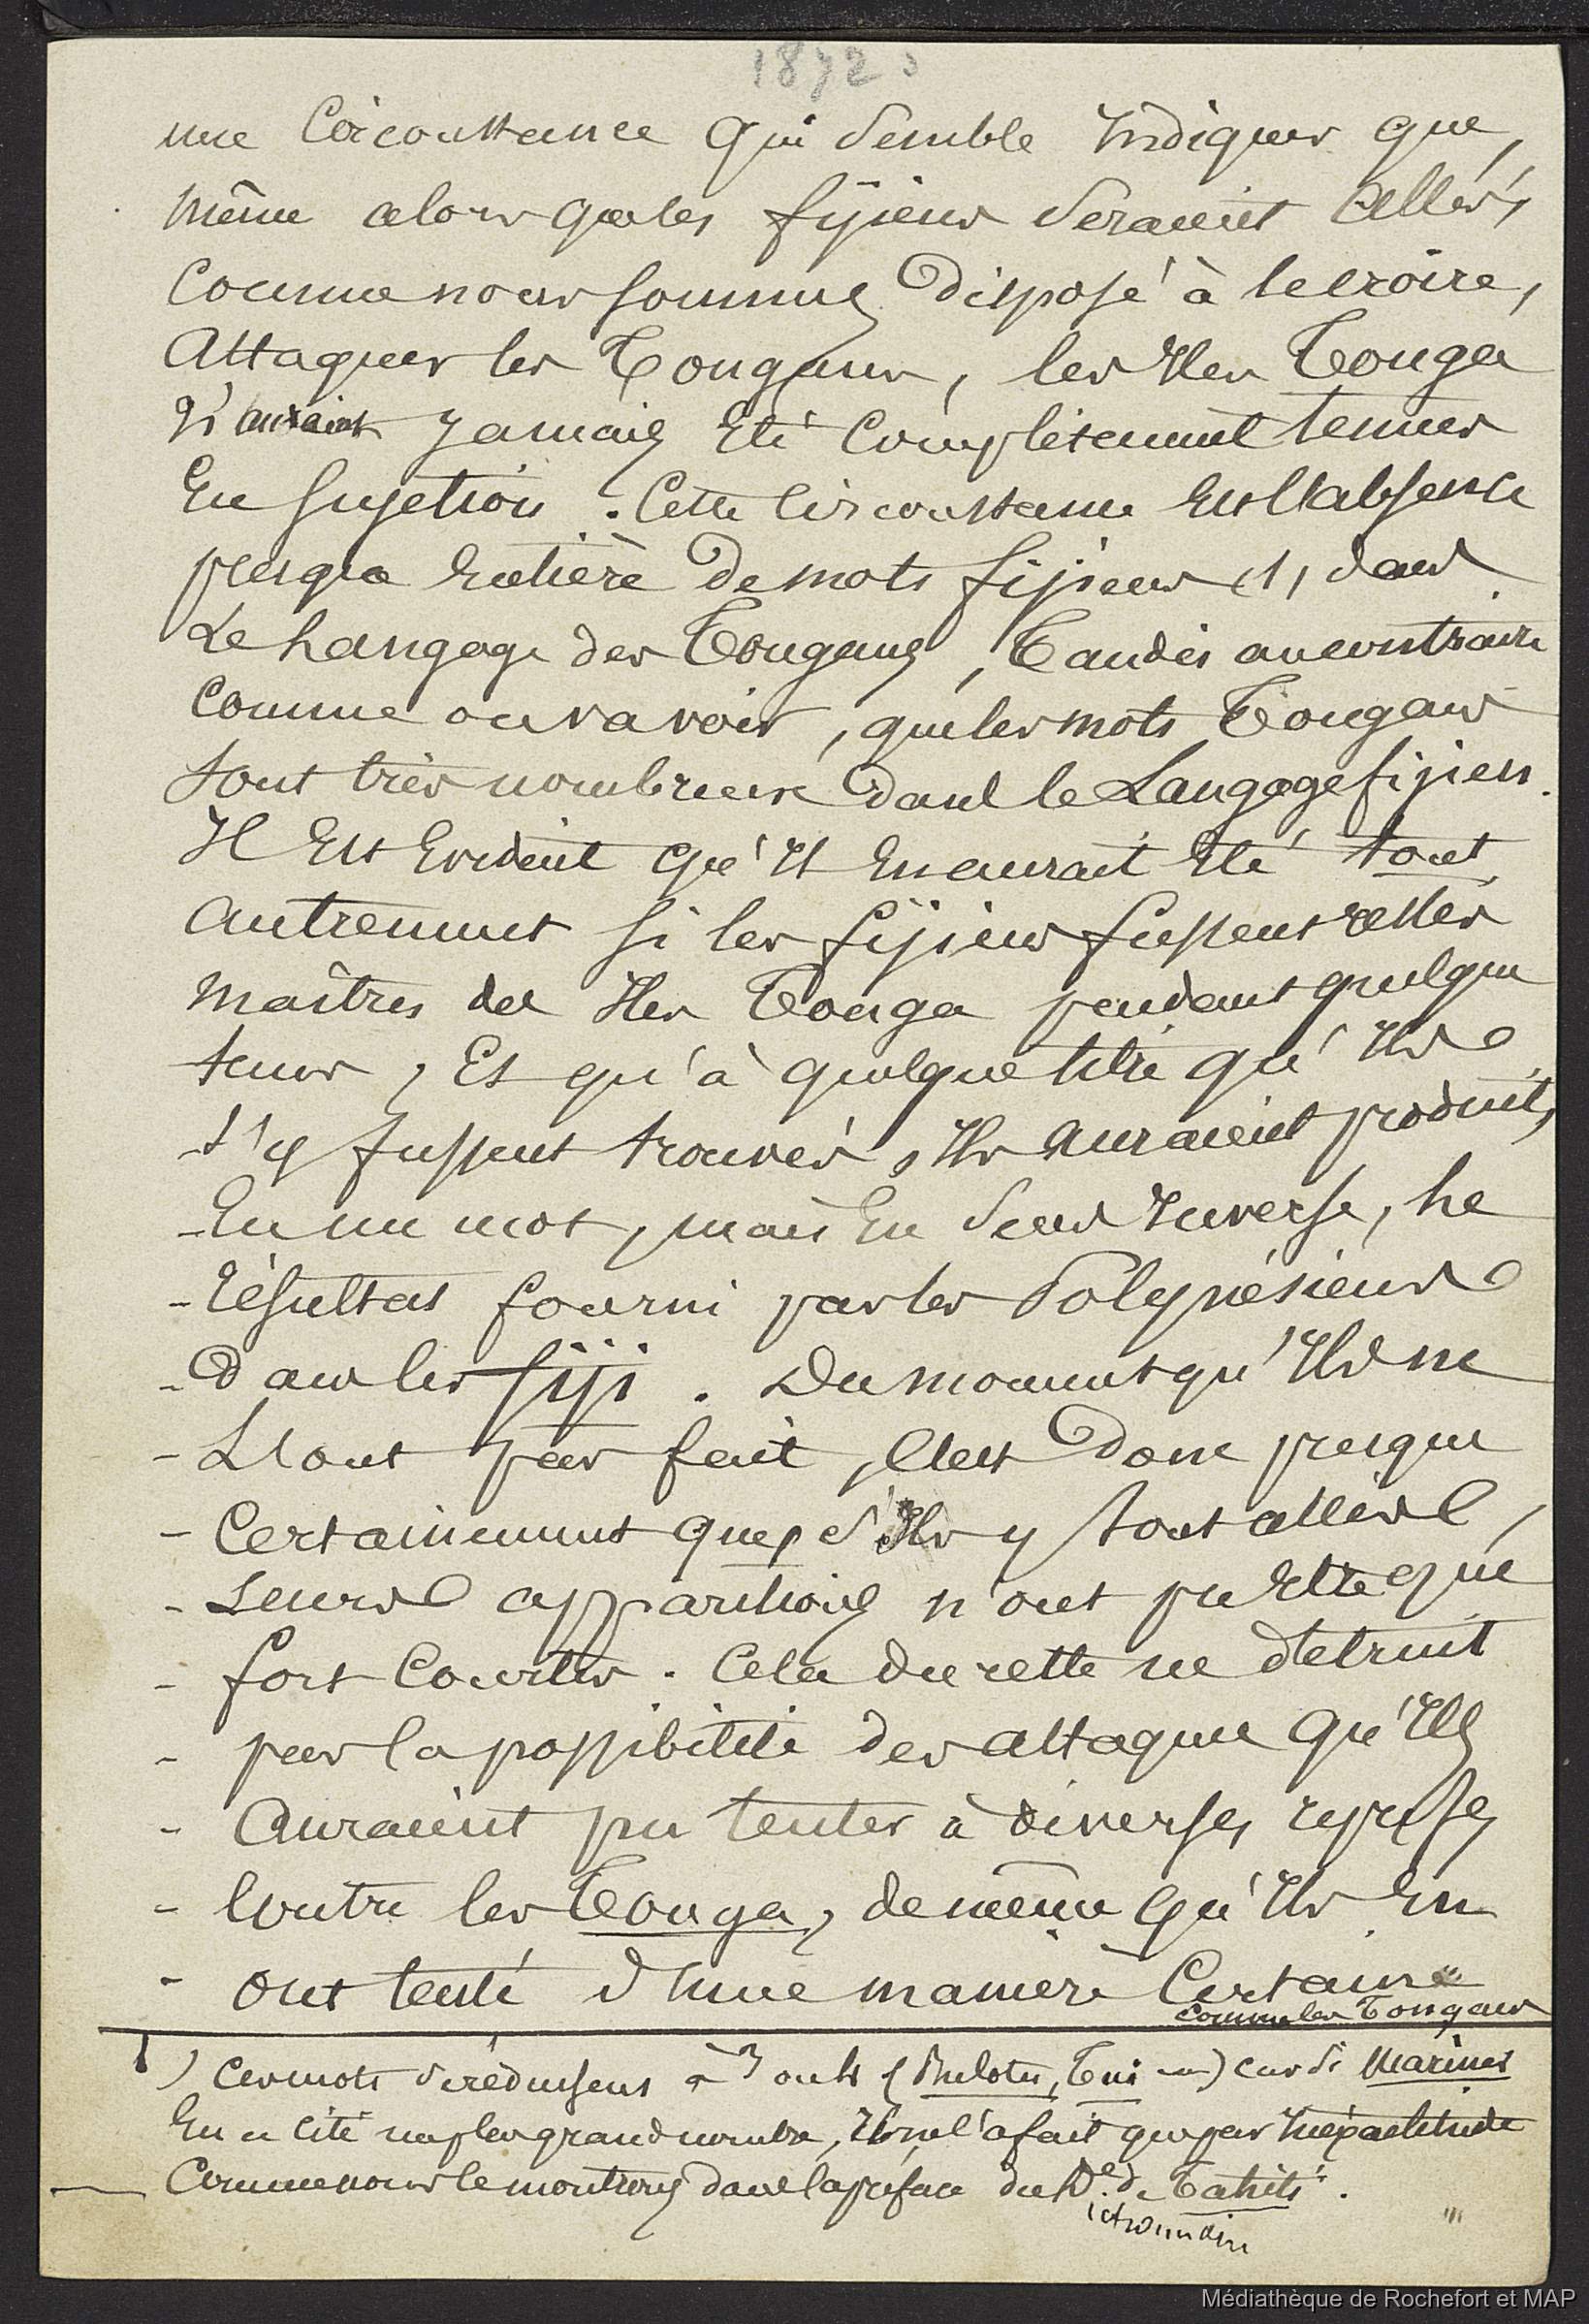 1872
une Circonstance qui semble Indiquer que,
même alors que les fijiens seraient allés,
Comme nous sommes disposé à le croire,
Attaquer les Tongans, les Iles Tonga
N'auraient Jamais Eté Complètement tenues
En sujetion. Cette Circonstance Est l'absence
presque Entière de mots fijiens (1) dans
Le Langage des Tongans, Tandis au contraire
Comme on va voir, que les mots Tongans
sont très nombreux dans le Langage fijien.
Il Est Evident qu'Il En aurait Eté tout
Autrement si les fijiens fussent restés
Maîtres des Iles Tonga pendant quelque
tems, Et qu'à quelque titre qu'Ils
s'y fussent trouvés, Ils Auraient produit,
En un mot, mais En sens Inverse, le
résultat fourni par les Polynésiens
Dans les fiji. Du moment qu'Ils ne
L'ont pas fait, C'est Donc presque
Certainement que, s'Ils y sont allés,
Leurs apparitions n'ont pu Etre que
fort Courtes. Cela du reste ne détruit
pas la possibilité des attaques qu'Ils
Auraient pu tenter à diverses reprises
Contre les Tonga, de même qu'Ils En
Ont tenté d'une manière Certaine
comme les Tongans
1) Ces mots se réduisent à 3 ou 4 (Bulotu, Tui) car si Mariner
En a cité un plus grand nombre, Il ne l'a fait que par Inéxactitude
Comme nous le montrons dans la préface du D.re de Tahiti.